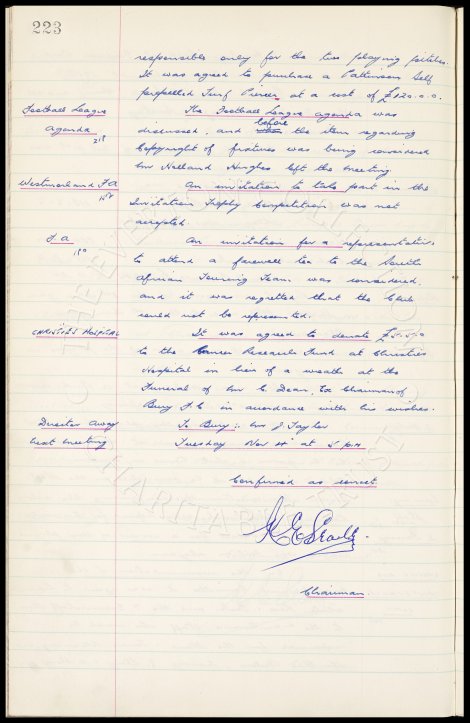 223
responsible only for the two playing pitches.
It was agreed to purchase a Pattinson Self
propelled Turf Piercer at a cost of £120.0.0.
Football League The Football League agenda was
Agenda discussed, and before the item regarding
218 Copyright of fixtures was being considered
Mr Holland Hughes left the meeting.
Westmorland F A An invitation to take part in the
Invitation Trophy Competition was not
accepted.
F.A An invitation for a representative
to attend a farewell tea to the South
African Touring Team was considered
and it was regretted that the Club
could not be represented.
CHRISTIES HOSPITAL It was agreed to donate £5.5.0
to the Cancer Research Fund at Christies
Hospital in lieu of a wreath at the
Funeral of Mr C Dean, Ex Chairman of
Bury F.C in accordance with his wishes.
Director Away To Bury:- Mr J Taylor
Next meeting Tuesday Nov 4th at 5 pm
Confirmed as correct.
Chairman
THE EVERTON COLLECTION
CHARITABLE TRUST